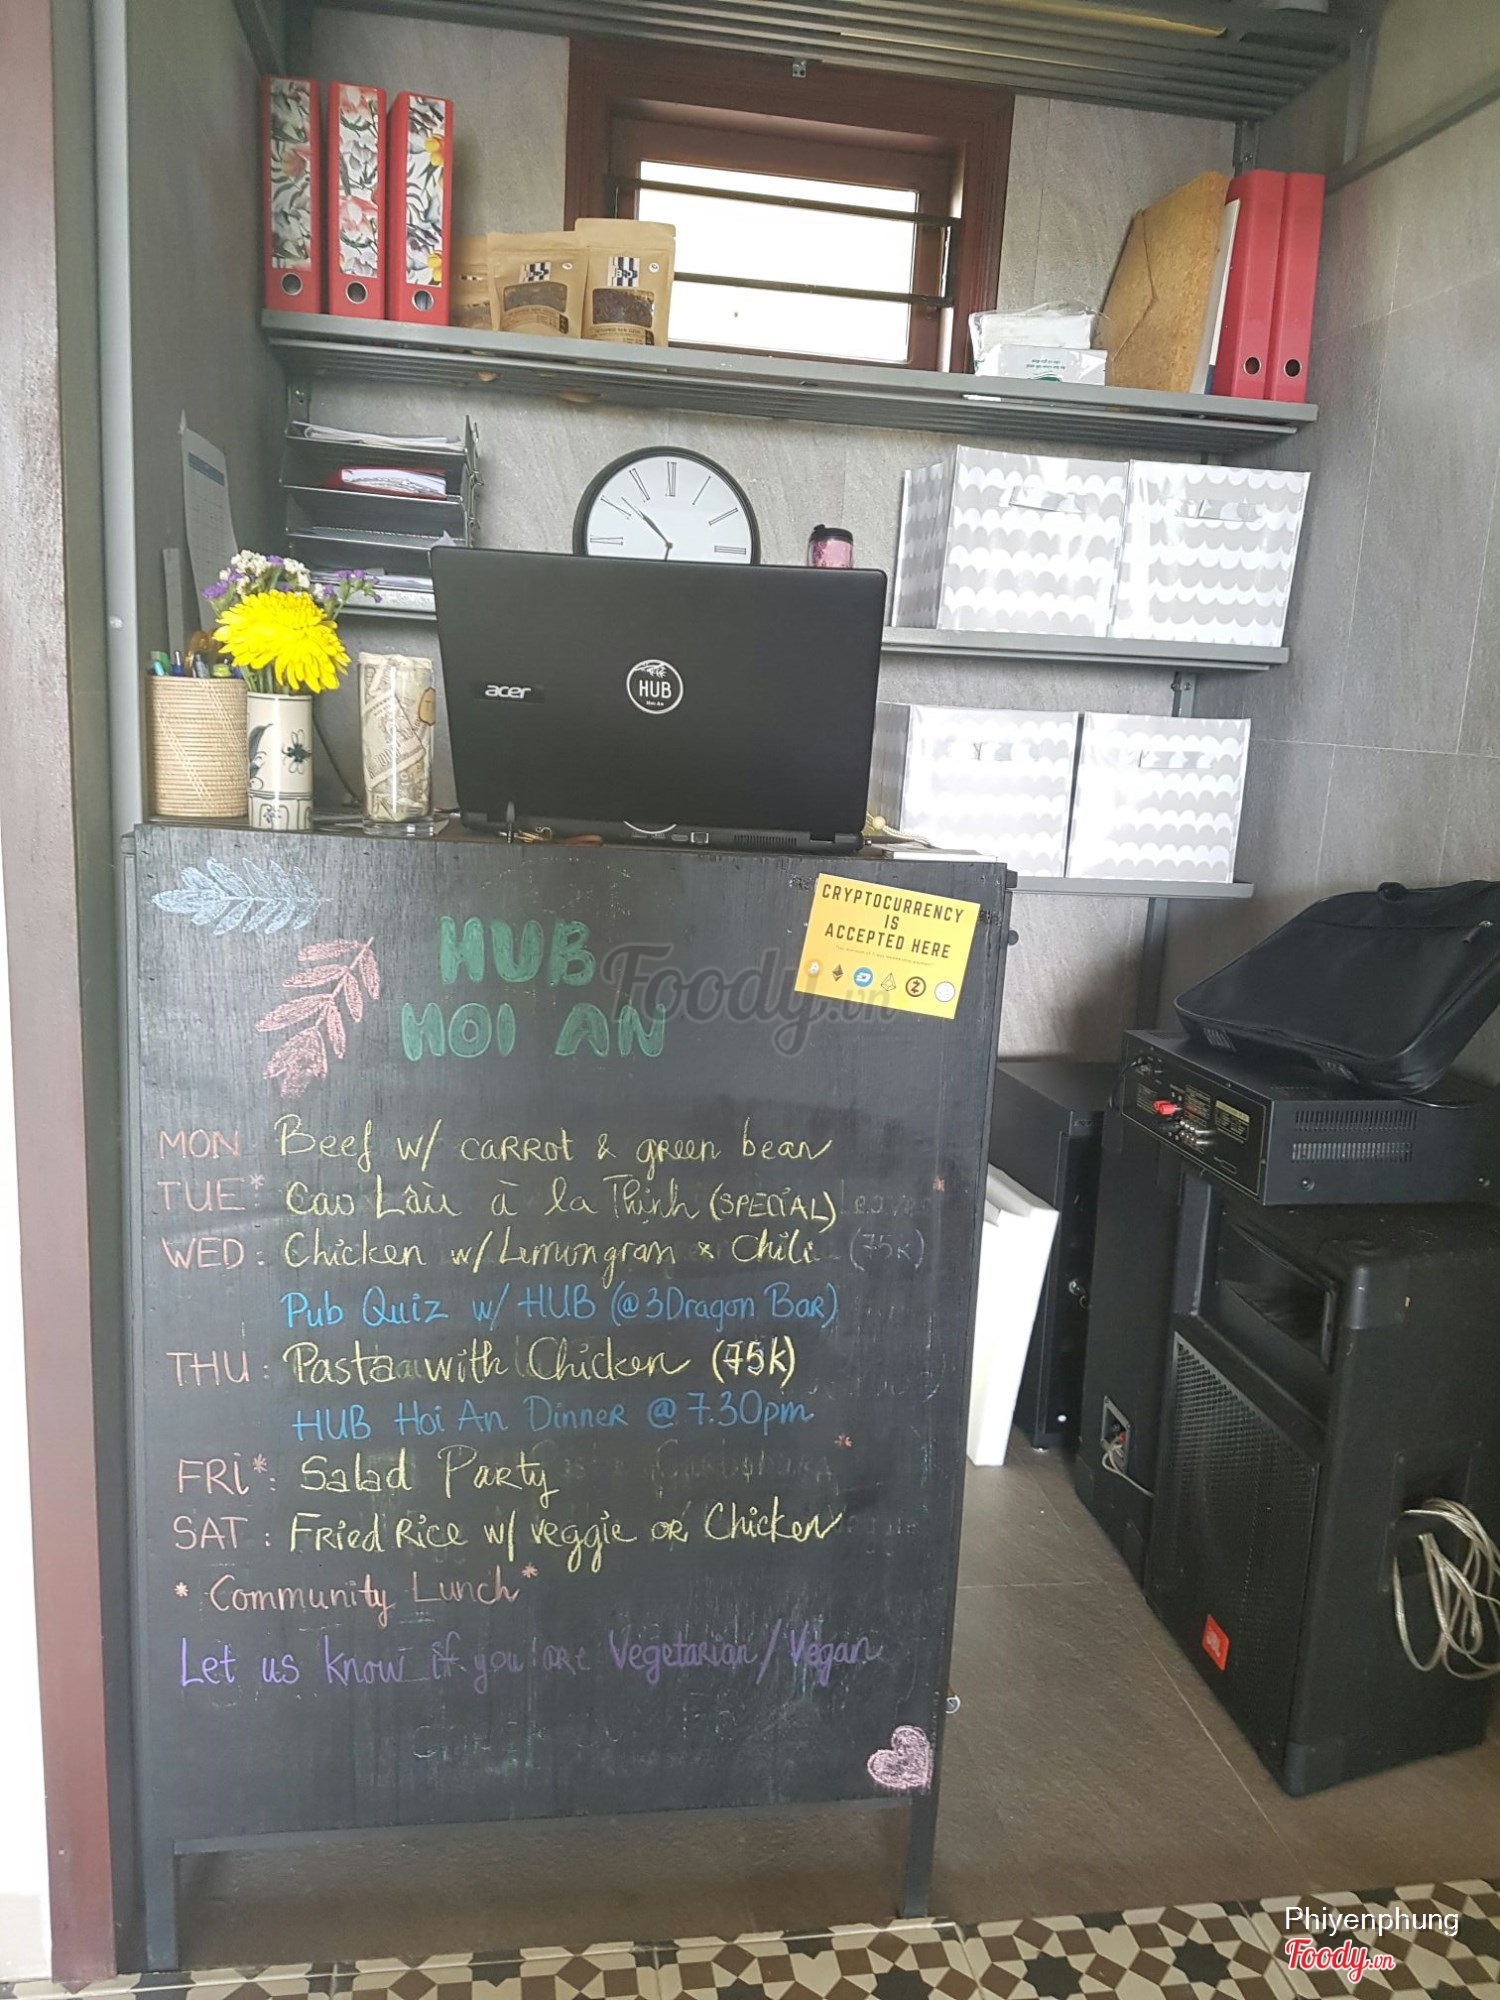 acer
HUB
Hoi An
CRYPTOCURRENCY
IS
ACCEPTED HERE
HUB
HOI AN
Foody.vn
MON: Beef w/ carrot & green bean
TUE*: Cao Lầu à la Thịnh (SPECIAL)
WED: Chicken w/ Lemongrass & Chili (75k)
Pub Quiz w/ HUB (@ 3Dragon Bar)
THU: Pasta with Chicken (75k)
HUB Hoi An Dinner @ 7.30pm
FRI*: Salad Party
SAT: Fried Rice w/ veggie or Chicken
* Community Lunch *
Let us know if you are Vegetarian / Vegan
Phiyenphung
Foody.vn